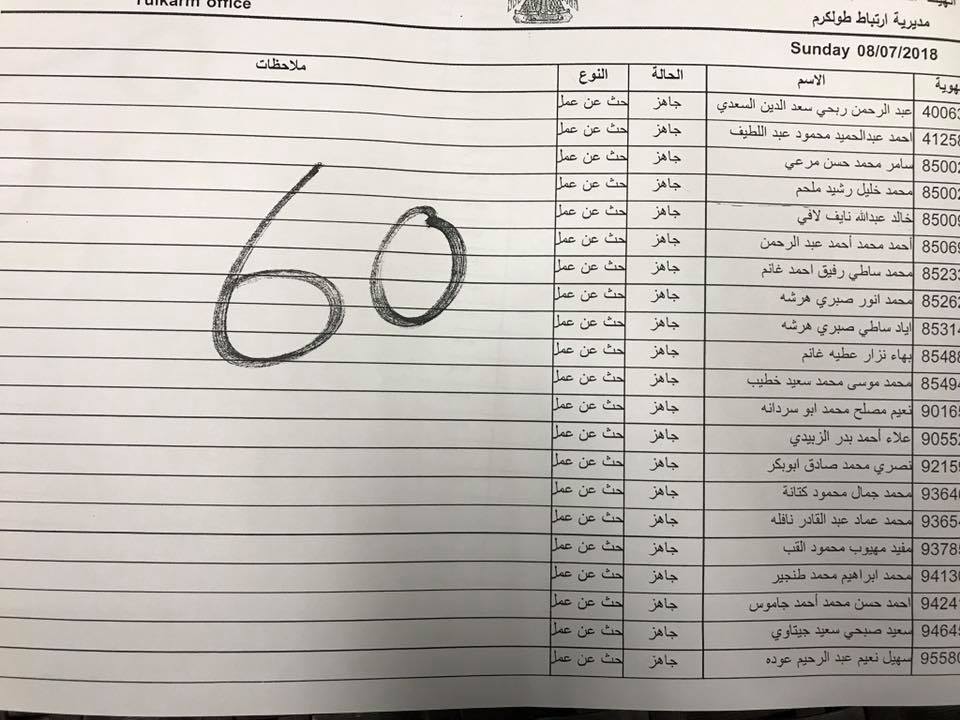 Tulkarm office
مديرية ارتباط طولكرم
Sunday 08/07/2018
هوية الاسم الحالة النوع ملاحظات
40063 عبد الرحمن ربحي سعد الدين السعدي جاهز حث عن عمل
41258 احمد عبدالحميد محمود عبد اللطيف جاهز حث عن عمل
85002 سامر محمد حسن مرعي جاهز حث عن عمل
85002 محمد خليل رشيد ملحم جاهز حث عن عمل
85009 خالد عبدالله نايف لافي جاهز حث عن عمل
85069 أحمد محمد أحمد عبد الرحمن جاهز حث عن عمل
85233 محمد ساطي رفيق احمد غانم جاهز حث عن عمل
85262 محمد انور صبري هرشه جاهز حث عن عمل
85314 اياد ساطي صبري هرشه جاهز حث عن عمل
85488 بهاء نزار عطيه غانم جاهز حث عن عمل
85494 محمد موسى محمد سعيد خطيب جاهز حث عن عمل
90165 نعيم مصلح محمد ابو سردانه جاهز حث عن عمل
90552 علاء أحمد بدر الزبيدي جاهز حث عن عمل
92159 نصري محمد صادق ابوبكر جاهز حث عن عمل
93640 محمد جمال محمود كتانة جاهز حث عن عمل
93654 محمد عماد عبد القادر نافله جاهز حث عن عمل
93785 مفيد مهيوب محمود القب جاهز حث عن عمل
94130 محمد ابراهيم محمد طنجير جاهز حث عن عمل
94241 احمد حسن محمد أحمد جاموس جاهز حث عن عمل
94645 سعيد صبحي سعيد جيتاوي جاهز حث عن عمل
95580 سهيل نعيم عبد الرحيم عوده جاهز حث عن عمل
60